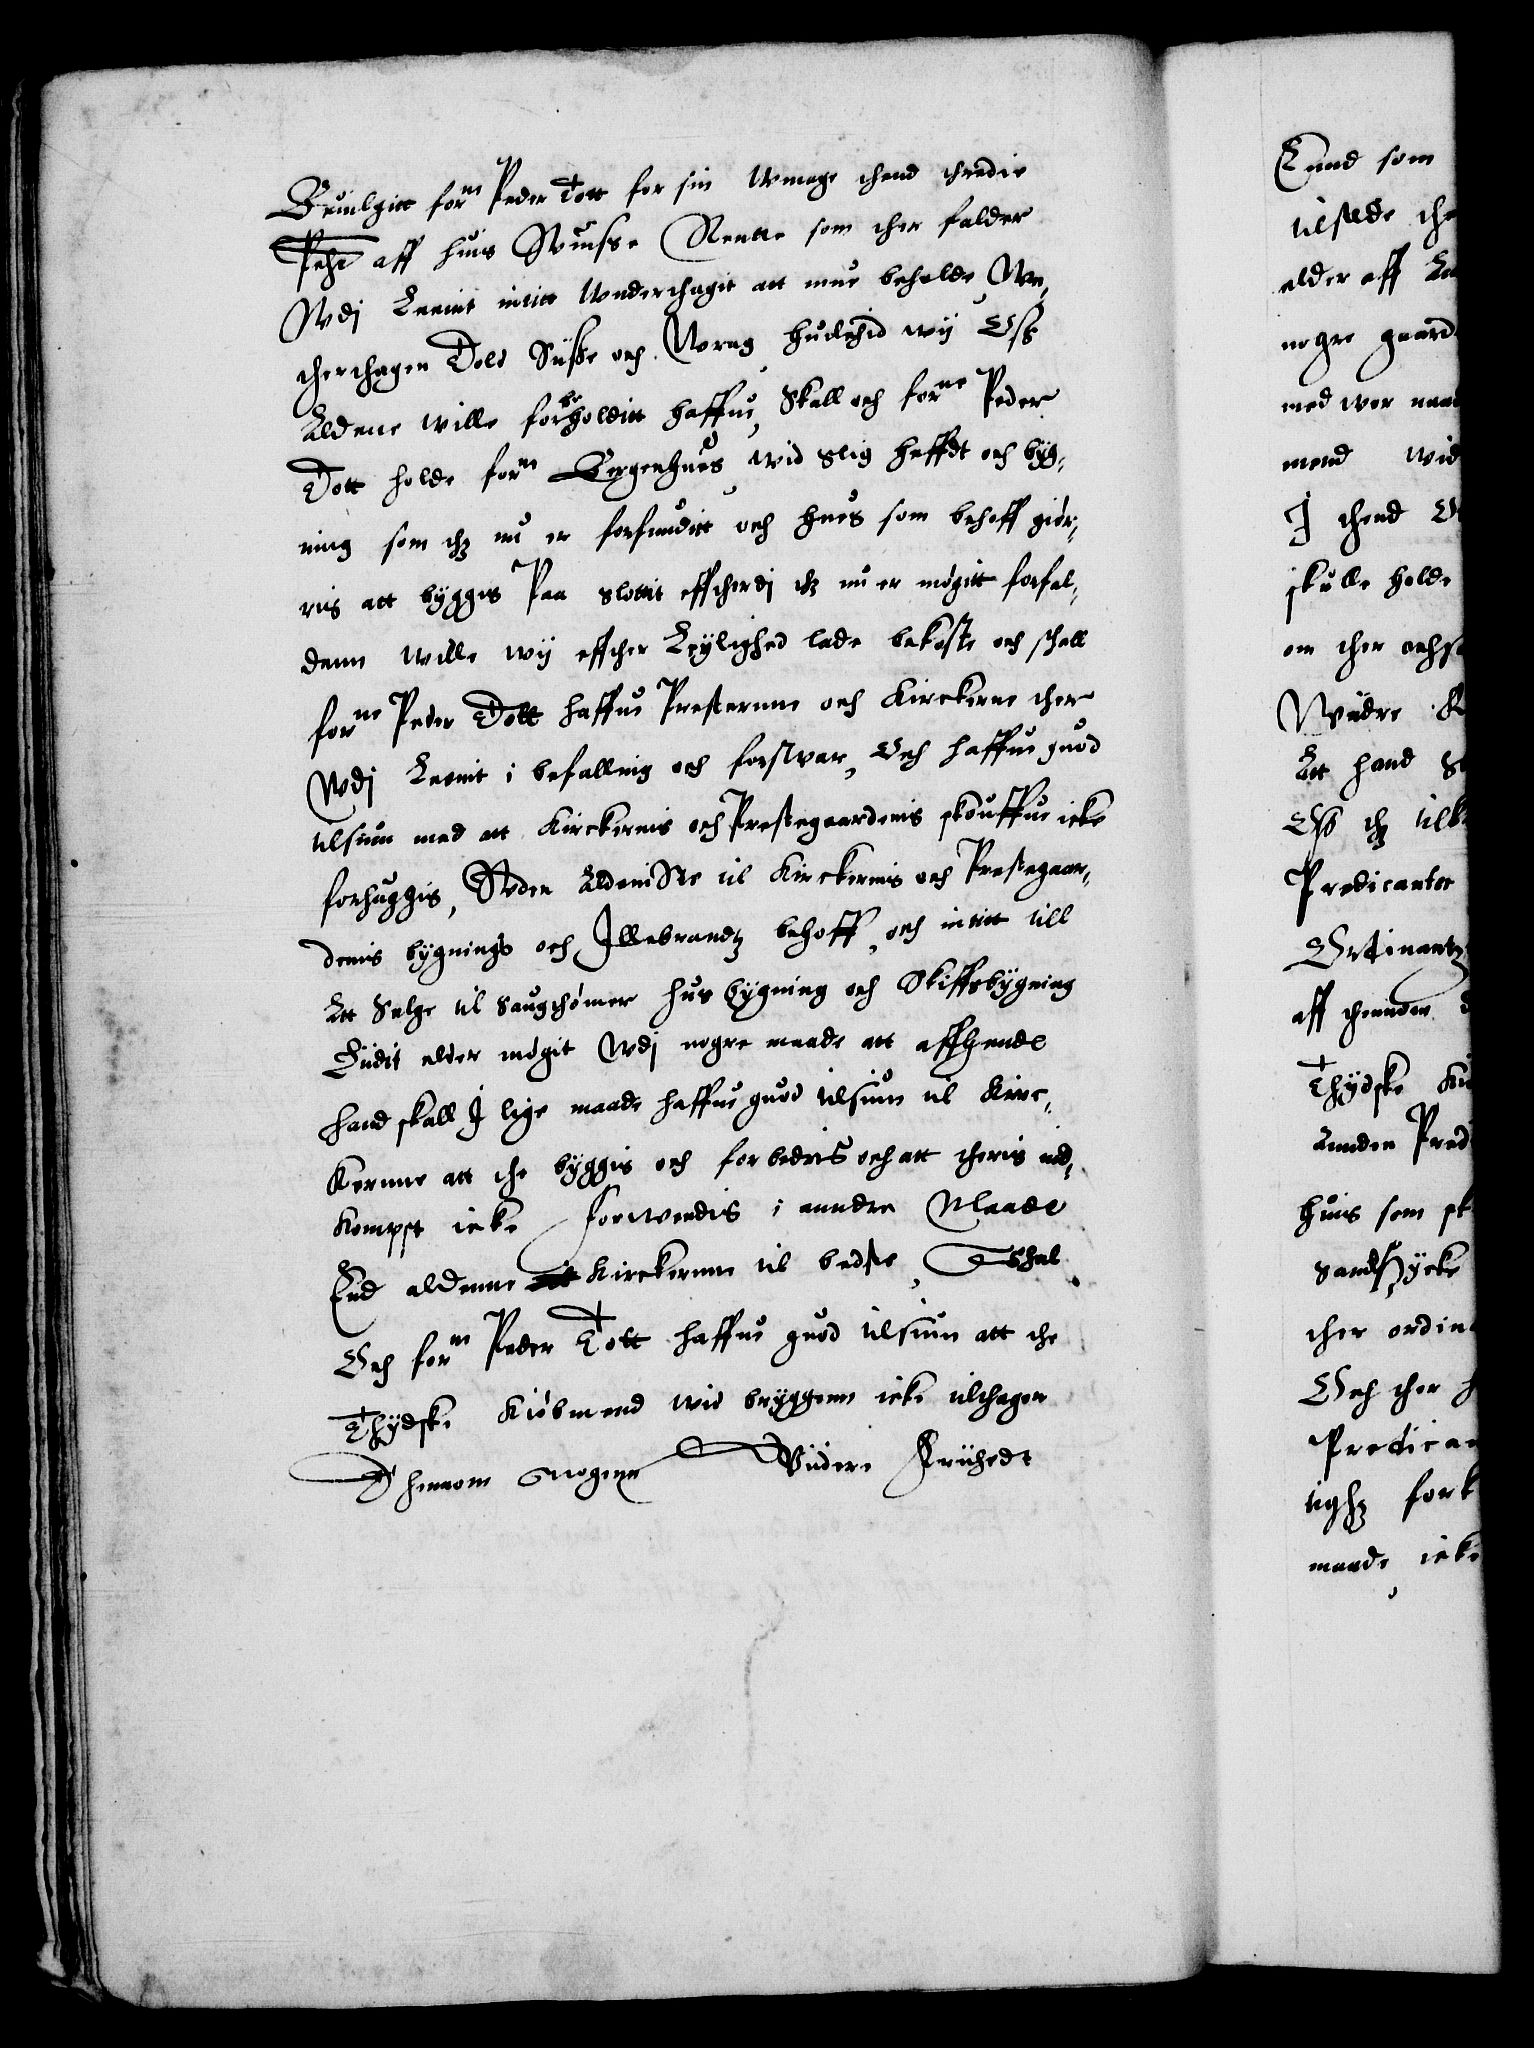 Beuilgitt for^ne Peder Tott for sin Wmage thend thredie
Peng aff huis Wuisse Rentte som ther falder
Wdj Leenit intitt Wnderthagit att mue beholde, Wn,
ther thagen Told Siise och Wrag, huilchid wij Oss
Aldene wille forbeholditt haffue, Skall och for^ne Peder
Tott holde for^ne Bergenhuus wid slig hefft och byg,
ning som thz nu er forfunditt och huus som behoff giør,
ris att byggis Paa slottit effthordj thz nu er mógitt forfal,
denn wille wij effther Leylighed lade bekoste och schall
for^ne Peder Tott haffue Presterne och Kirckerne ther
Wdj Leenit i befalling och forsvar, Och haffue guod
tilsiun med att Kirckernis och Prestegaardenis skouffue icke
forhuggis, Wden Aldeniste til Kirckernis och Prestegaar,
denis bygnings och Jllebrandtz behoff, och intitt till
Att Selge til Saugthømer hus bygning och Skiffsbygning
Lidit eller mógit Wdj nogre maade att affhende
hand skall J lige maade haffue guod tilsiun til Kirc,
kernne att the byggis och forbedris och att theris ind,
kompst icke forwendis i anndre Maade
End aldenne Kirckernne til bedste, Schal
Och for^ne Peder Tott haffue guod tilsiun att the
Thydske Kiøbmend wid bryggenn icke tilthager
Thennom Nogenn Widere Friihedt
Lund som
tilstede the
elder aff
nogre gaard
med wor naa
mend wid
J thend
skulle holde
om ther ochs
Windre
Att hand
Oss thz tilk
Predicanter
Ortinantz
aff thennom
Thydske
Annden Pred
huis som sk
Sandstycke
ther ordin
Och ther
Predican
fork
maade, icke